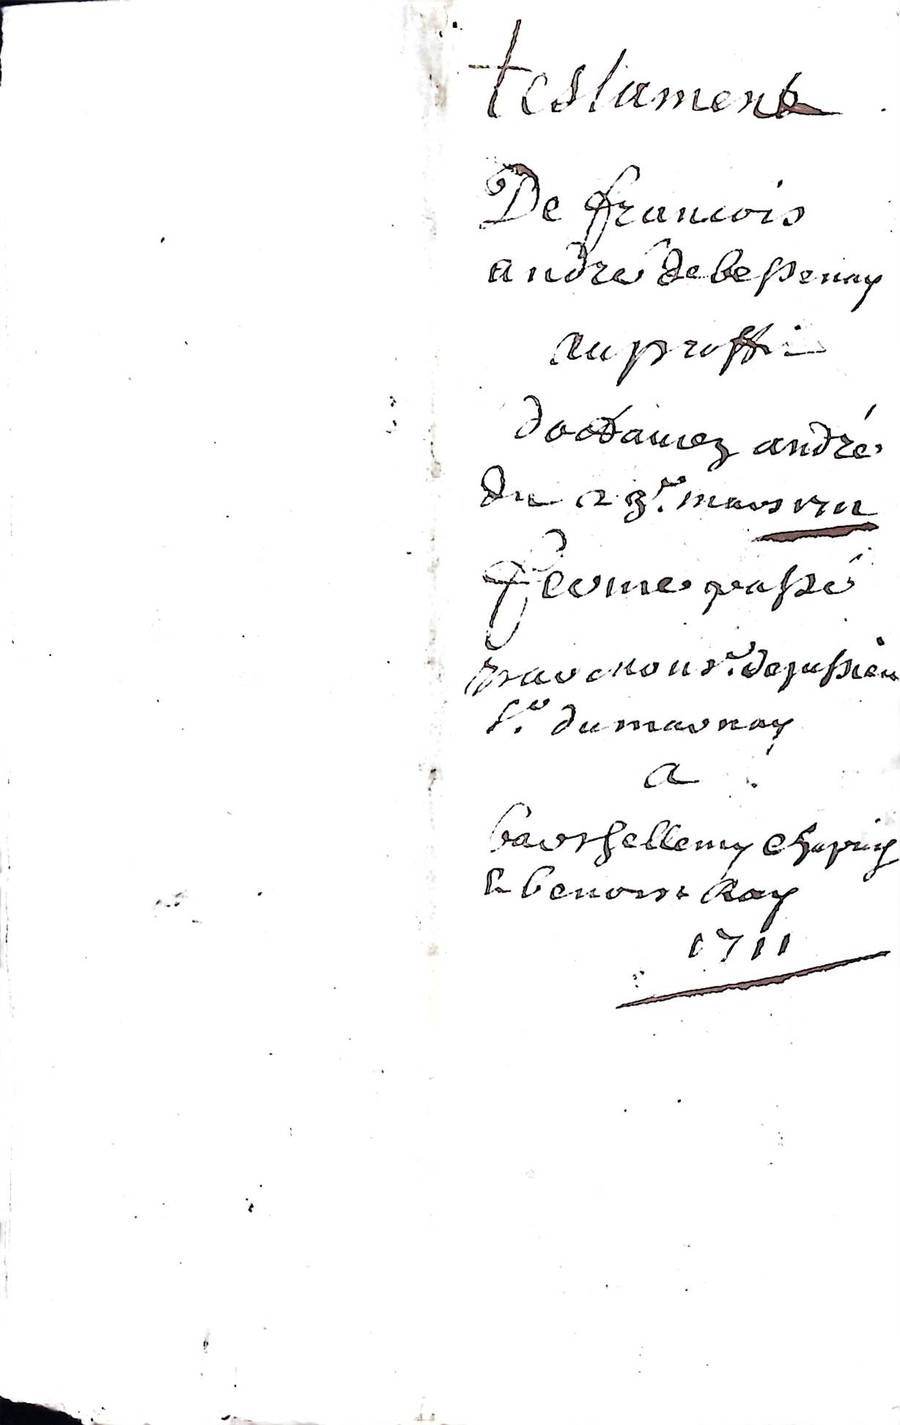 testament
De francois
andré de bessenay
au proffit
andré
du 23e. mars 1711
ferme passé
par monsr. dejussieu
sr. du marnay
a
barthellemy chapuy
& benoist Ray
1711